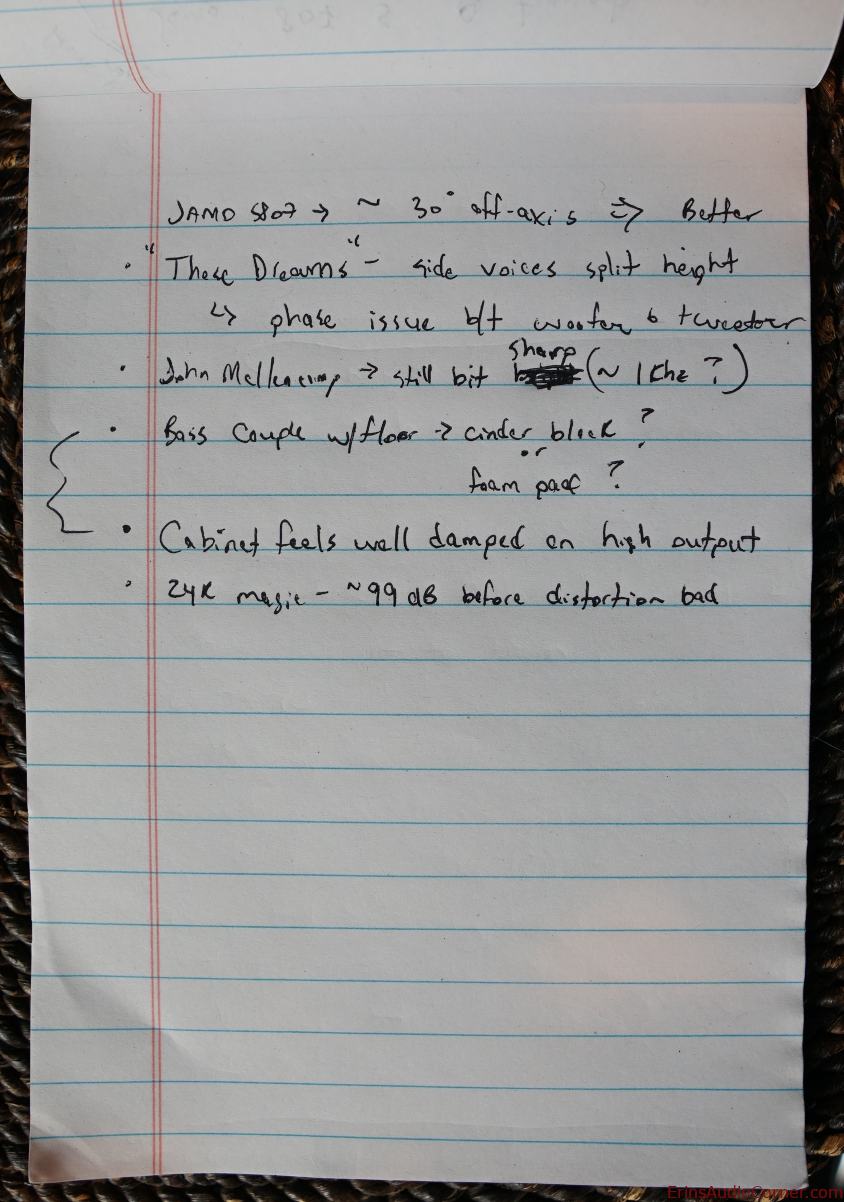 JAMO S807 → ~ 30° off-axis ⇒ Better
• "These Dreams" - side voices split height
↳ phase issue b/t woofer & tweeter
• John Mellencamp → still bit sharp (~ 1KHz ?)
• Bass Couple w/floor → cinder block ?
or
foam pad ?
• Cabinet feels well damped on high output
• 24K magic - ~99 dB before distortion bad
ErinsAudioCorner.com